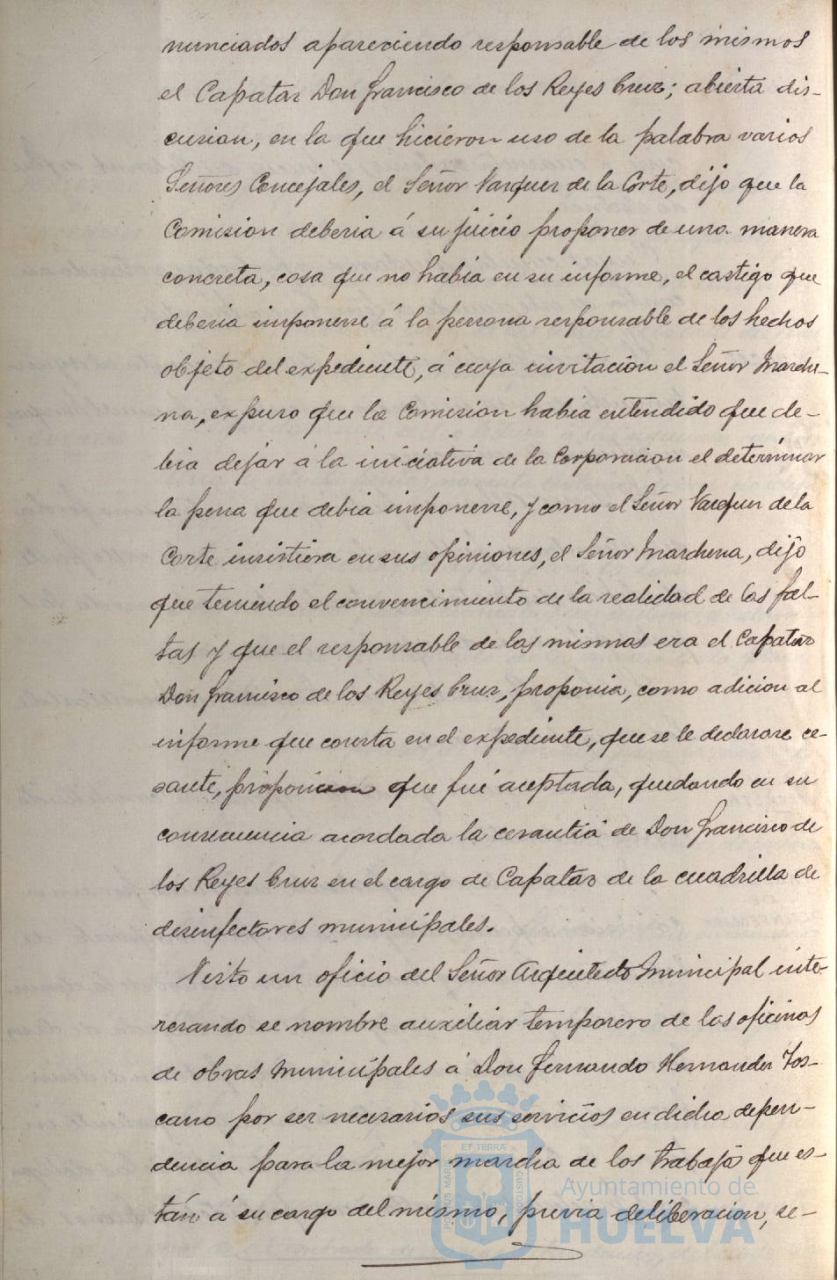 nunciados apareciendo responsable de los mismos
el Capataz Don Francisco de los Reyes Cruz; abierta dis-
cusion, en la que hicieron uso de la palabra varios
Señores Concejales, el Señor Vazquez de la Corte, dijo que la
Comision deberia á su juicio proponer de una manera
concreta, cosa que no habia en su informe, el castigo que
deberia imponerse á la persona responsable de los hechos
objeto del expediente, á cuya invitacion el Señor Marche-
na, expuso que la Comision habia entendido que de-
bia dejar á la iniciativa de la Corporacion el determinar
la pena que debia imponerse, y como el Señor Vazquez de la
Corte insistiera en sus opiniones, el Señor Marchena, dijo
que teniendo el convencimiento de la realidad de las fal-
tas y que el responsable de las mismas era el Capataz
Don Francisco de los Reyes Cruz, proponia, como adicion al
informe que consta en el expediente, que se le declarase ce-
sante, proposicion que fué aceptada, quedando en su
consecuencia acordada la cesantia de Don Francisco de
los Reyes Cruz en el cargo de Capataz de la cuadrilla de
desinfectores municipales.
Visto un oficio del Señor Arquitecto Municipal inte-
resando se nombre auxiliar temporero de las oficinas
de obras municipales á Don Fernando Hernandez Tos-
cano por ser necesarios sus servicios en dicha depen-
dencia para la mejor marcha de los trabajos que es-
tán á su cargo del mismo, previa deliberacion, se-
Ayuntamiento de
HUELVA